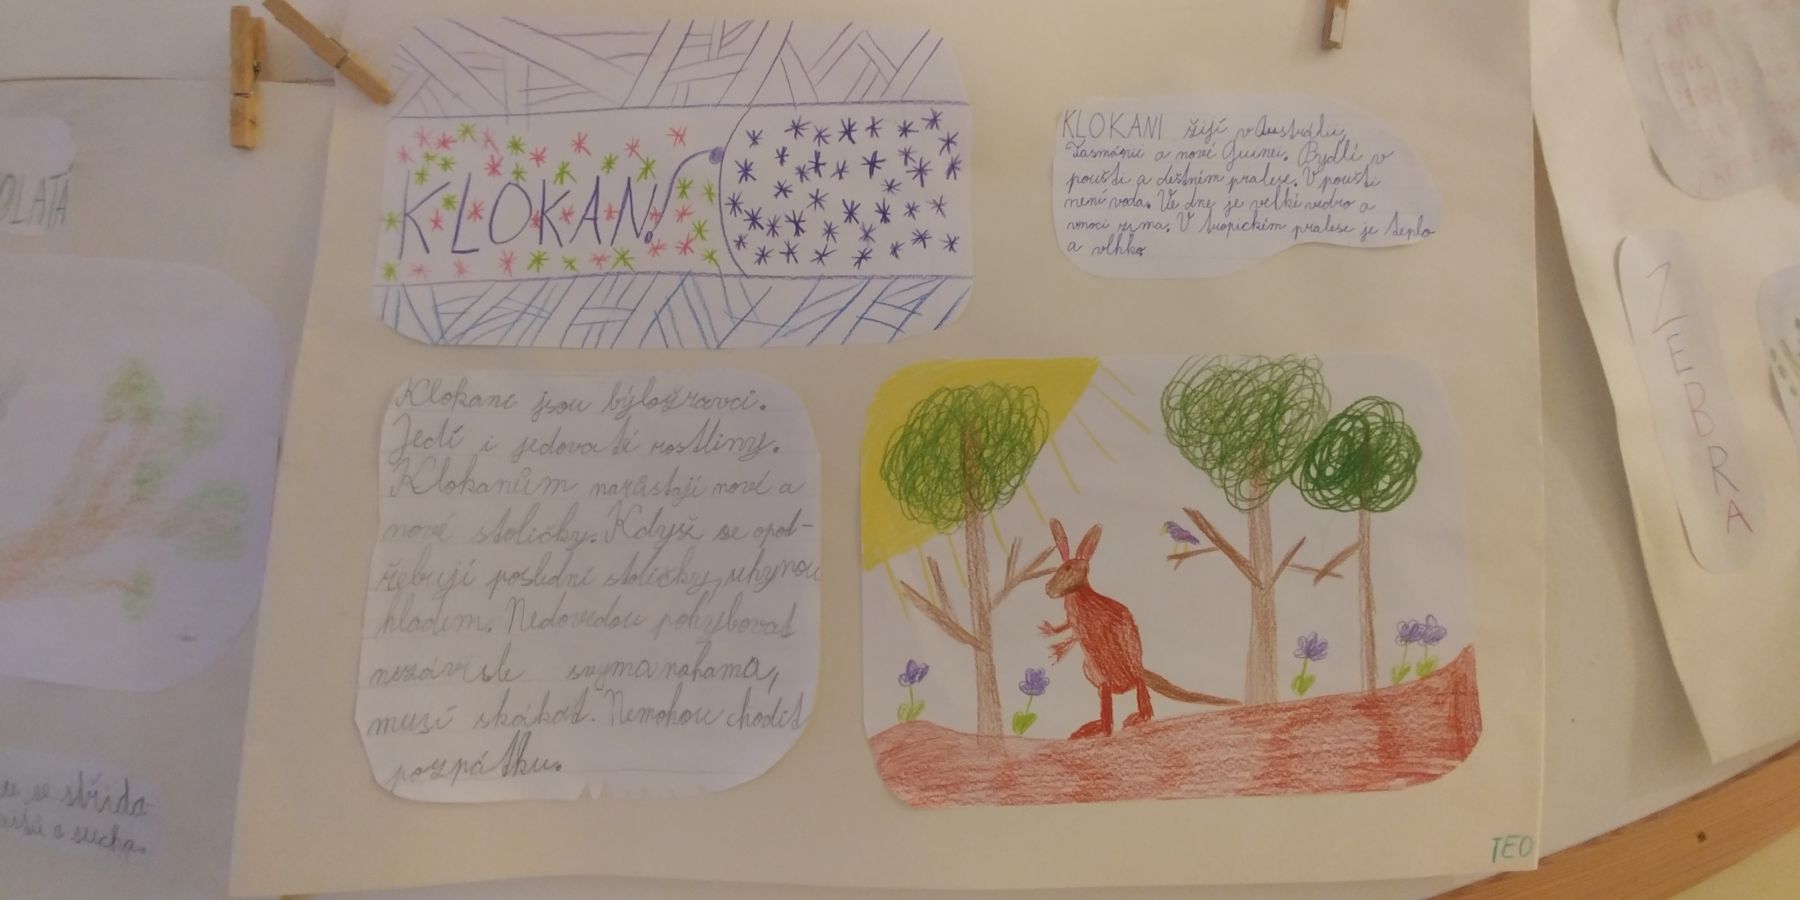 KLOKAN!
KLOKANI žijí v Austrálii,
Tasmánii a nové Guinei. Bydlí v
poušti a deštném pralese. V poušti
není voda. Ve dne je velké vedro a
vnoci zima. V tropickém pralese je teplo
a vlhko.
Klokane jsou býložravci.
Jedí i jedovaté rostliny.
Klokanům narůstají nové a
nové stoličky. Když se opot-
řebují poslední stoličky, uhynou
hladem. Nedovedou pohybovat
nezávisle svýma nohama,
musí skákat. Nemohou chodit
pozpátku.
TEO
ZEBRA
OLATÁ
se střída
a sucha.